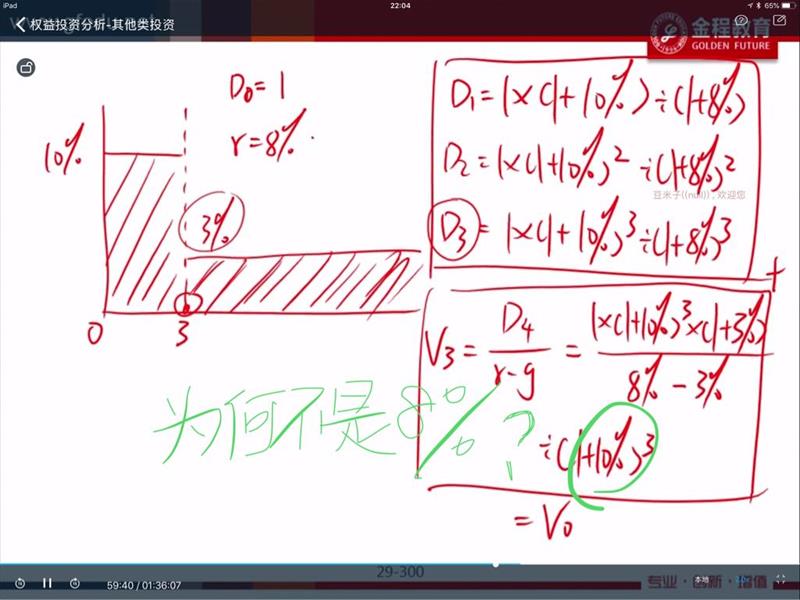 iPad
22:04
65%
权益投资分析-其他类投资
金程教育
GOLDEN FUTURE
D₀=1
r=8%
10%
3%
0
3
D₁=1×(1+10%)÷(1+8%)
D₂=1×(1+10%)²÷(1+8%)²
豆米子((null)),欢迎您
D₃=1×(1+10%)³÷(1+8%)³
+
V₃=D₄/(r-g)=(1×(1+10%)³×(1+3%))/(8%-3%)
÷(1+10%)³
=V₀
为何不是8%?
29-300
59:40 / 01:36:07
本地
专业·创新·增值